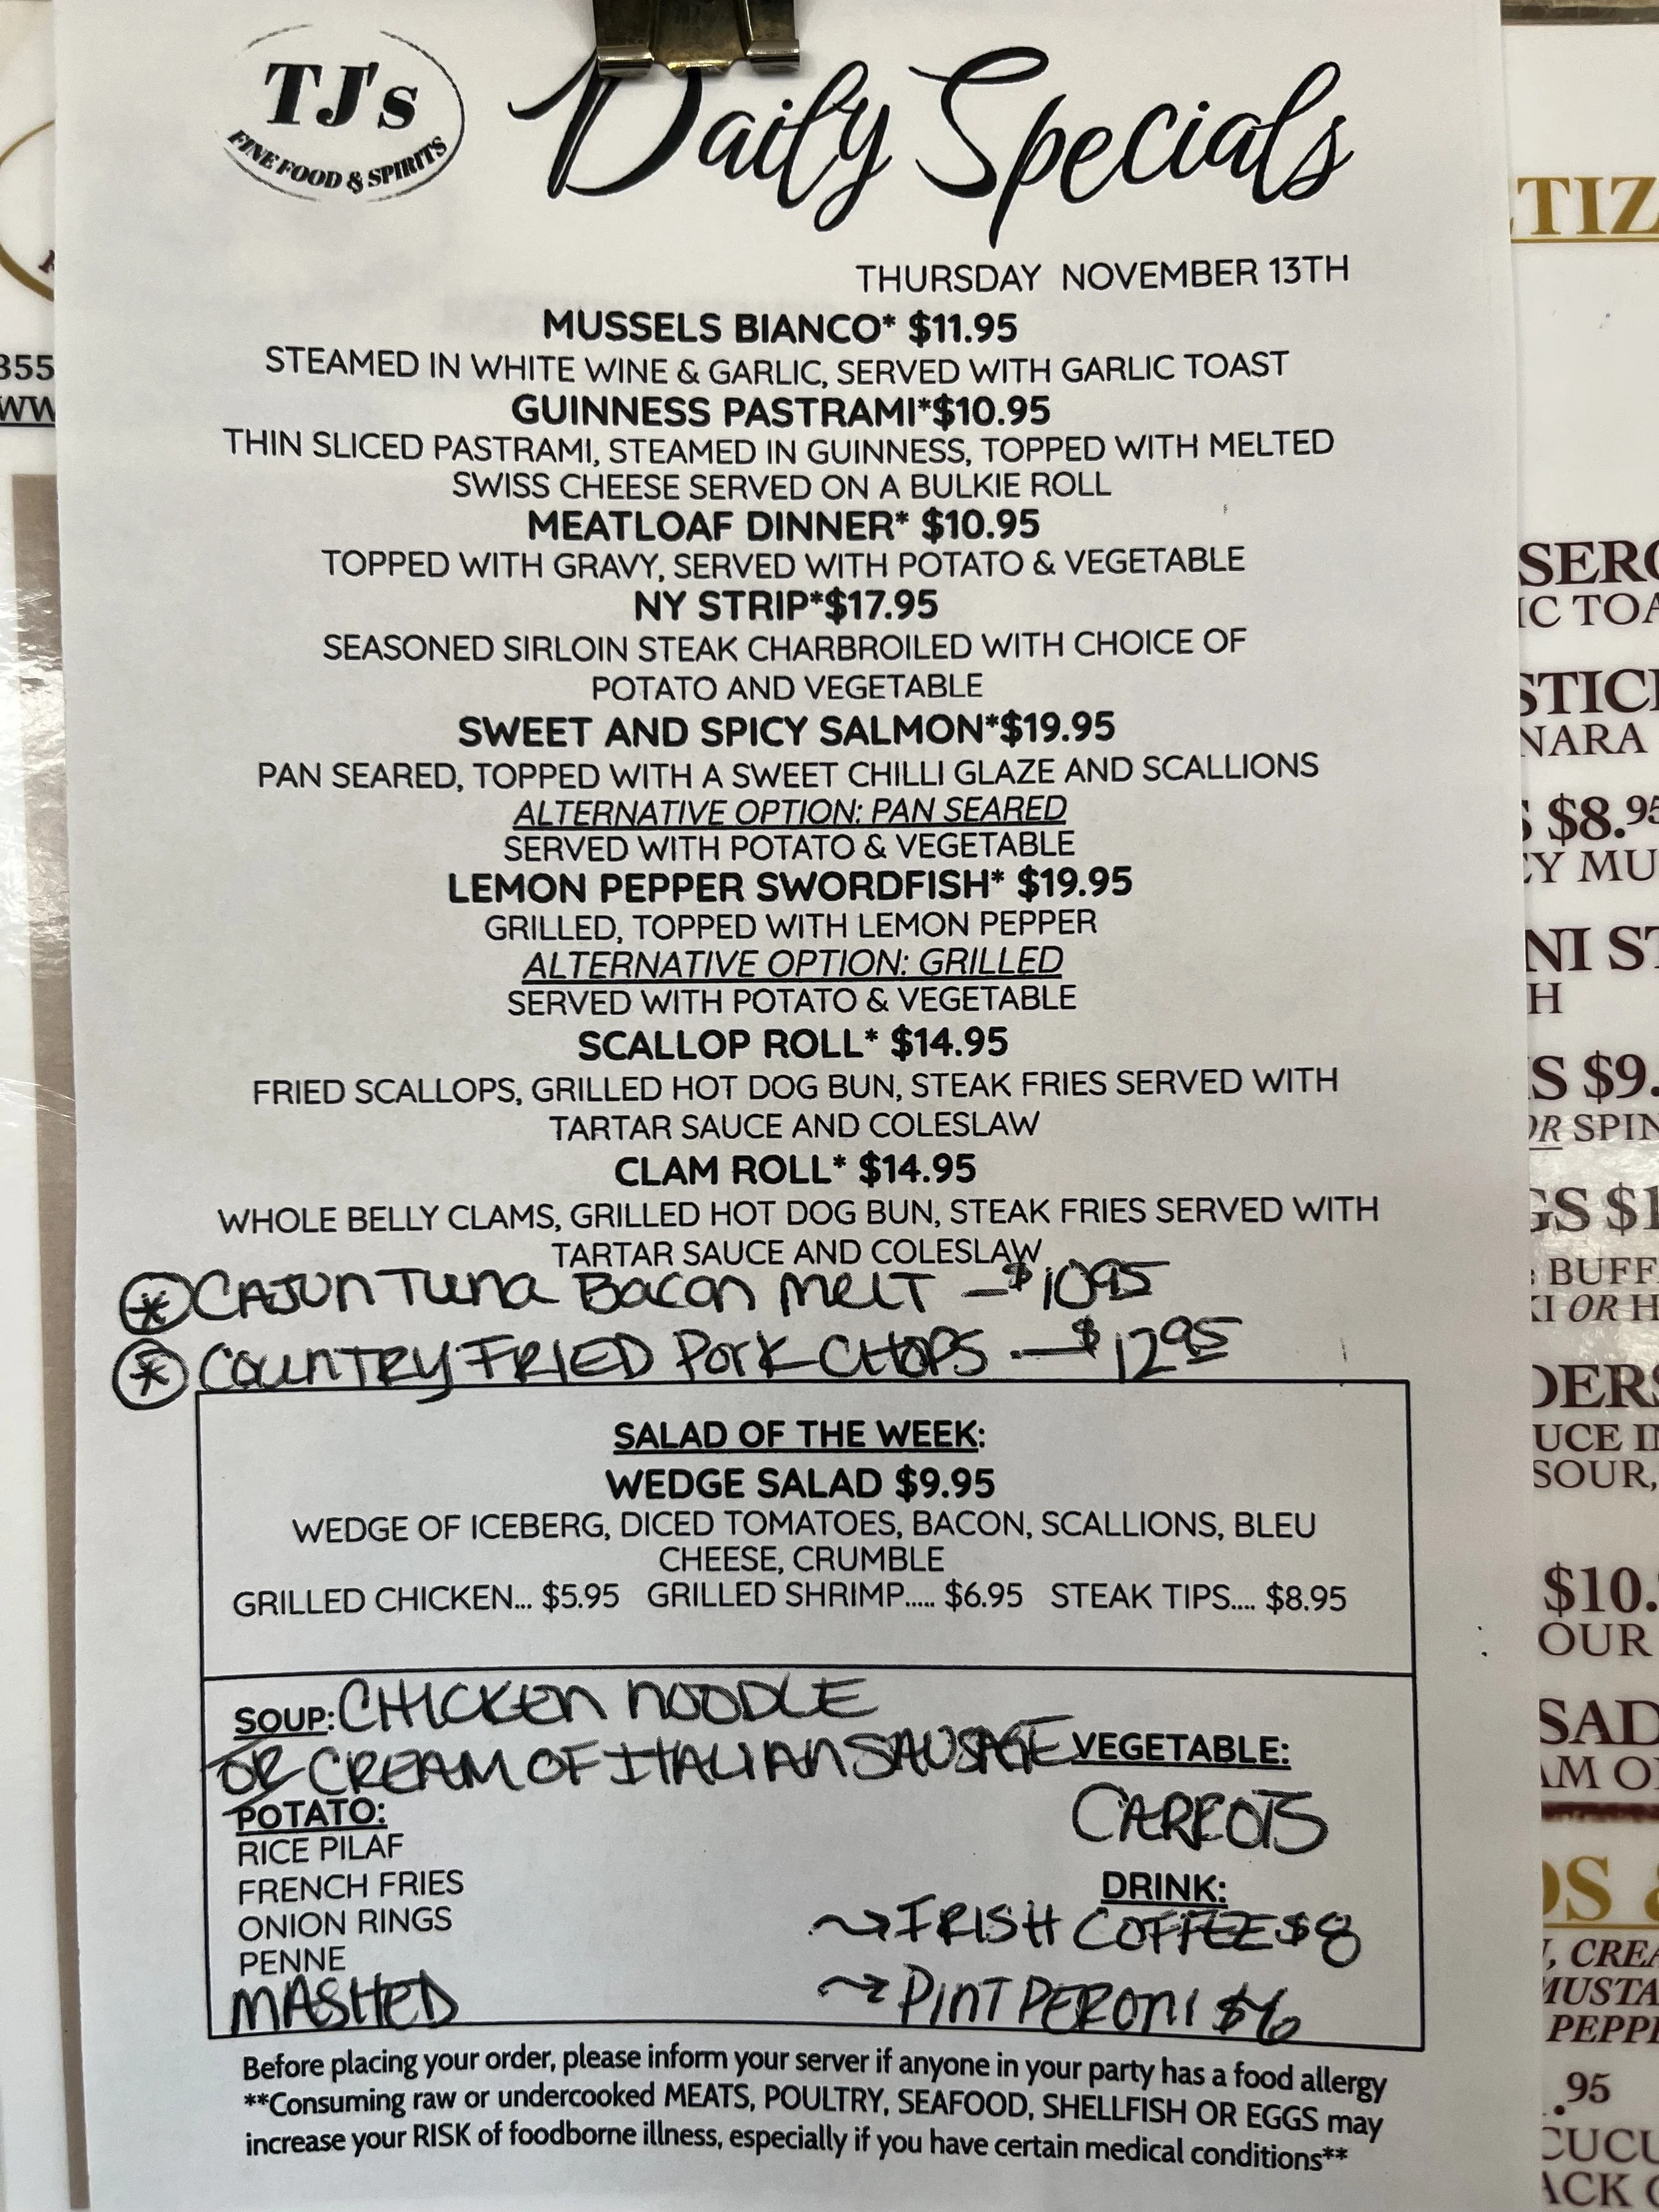 TJ's
FINE FOOD & SPIRITS
Daily Specials
THURSDAY NOVEMBER 13TH
MUSSELS BIANCO* $11.95
STEAMED IN WHITE WINE & GARLIC, SERVED WITH GARLIC TOAST
GUINNESS PASTRAMI*$10.95
THIN SLICED PASTRAMI, STEAMED IN GUINNESS, TOPPED WITH MELTED
SWISS CHEESE SERVED ON A BULKIE ROLL
MEATLOAF DINNER* $10.95
TOPPED WITH GRAVY, SERVED WITH POTATO & VEGETABLE
NY STRIP*$17.95
SEASONED SIRLOIN STEAK CHARBROILED WITH CHOICE OF
POTATO AND VEGETABLE
SWEET AND SPICY SALMON*$19.95
PAN SEARED, TOPPED WITH A SWEET CHILLI GLAZE AND SCALLIONS
ALTERNATIVE OPTION: PAN SEARED
SERVED WITH POTATO & VEGETABLE
LEMON PEPPER SWORDFISH* $19.95
GRILLED, TOPPED WITH LEMON PEPPER
ALTERNATIVE OPTION: GRILLED
SERVED WITH POTATO & VEGETABLE
SCALLOP ROLL* $14.95
FRIED SCALLOPS, GRILLED HOT DOG BUN, STEAK FRIES SERVED WITH
TARTAR SAUCE AND COLESLAW
CLAM ROLL* $14.95
WHOLE BELLY CLAMS, GRILLED HOT DOG BUN, STEAK FRIES SERVED WITH
TARTAR SAUCE AND COLESLAW
* CAJUN TUNA BACON MELT - $10.95
* COUNTRY FRIED PORK CHOPS - $12.95
SALAD OF THE WEEK:
WEDGE SALAD $9.95
WEDGE OF ICEBERG, DICED TOMATOES, BACON, SCALLIONS, BLEU
CHEESE, CRUMBLE
GRILLED CHICKEN... $5.95 GRILLED SHRIMP..... $6.95 STEAK TIPS.... $8.95
SOUP: CHICKEN NOODLE
OR CREAM OF ITALIAN SAUSAGE
POTATO:
RICE PILAF
FRENCH FRIES
ONION RINGS
PENNE
MASHED
VEGETABLE:
CARROTS
DRINK:
IRISH COFFEE $8
PINT PERONI $6
Before placing your order, please inform your server if anyone in your party has a food allergy
**Consuming raw or undercooked MEATS, POULTRY, SEAFOOD, SHELLFISH OR EGGS may
increase your RISK of foodborne illness, especially if you have certain medical conditions**
355
WW
TIZ
SERO
IC TOA
STICK
NARA
$8.95
EY MU
NI ST
H
S $9.
OR SPIN
GS $1
BUFF
KI OR H
DERS
UCE IN
SOUR,
$10.
OUR
SAD
AM O
OS &
, CREA
MUSTA
PEPPE
.95
CUCU
ACK